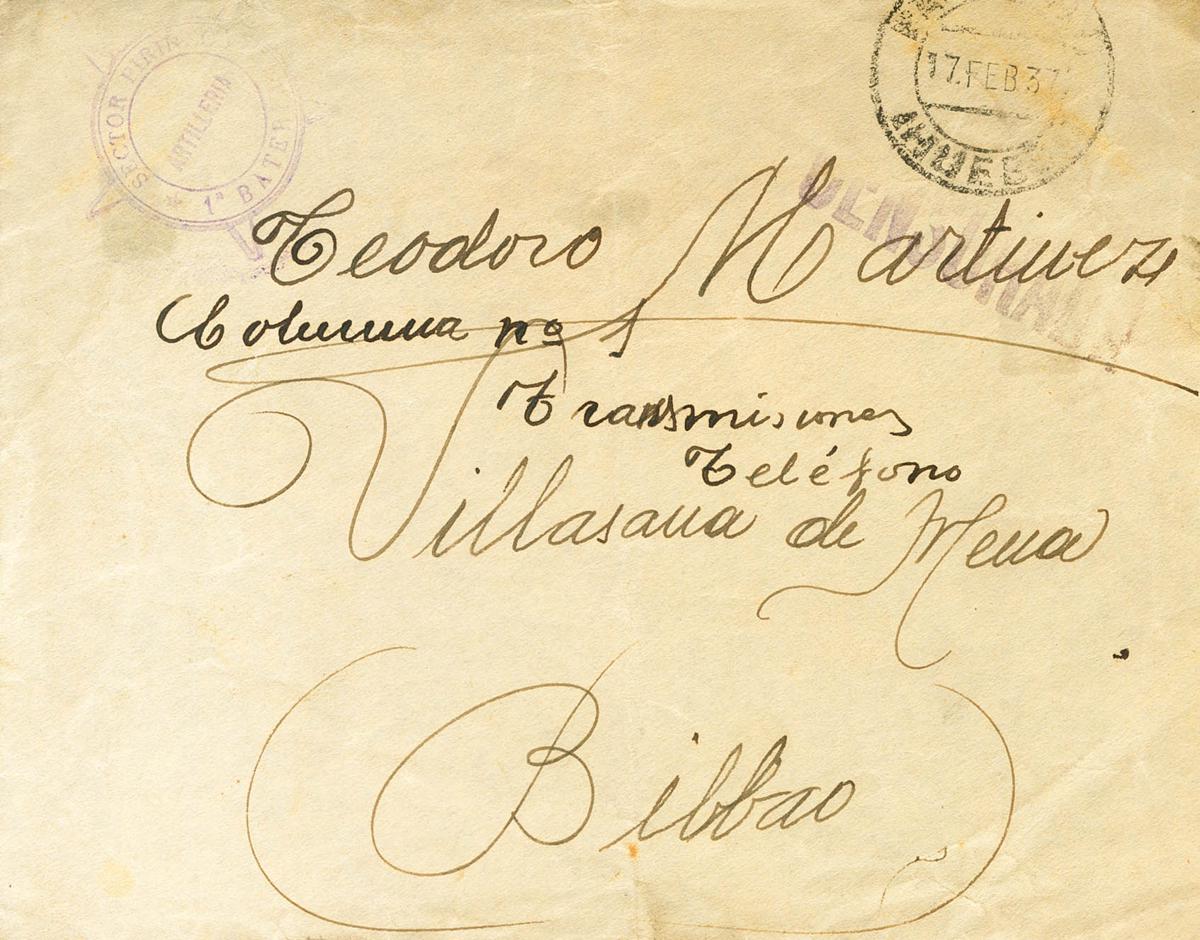 SECTOR
ARTILLERIA
1ª BATE
17.FEB 37
(HUES
CENSURADA
Teodoro Martinez
Columna nº 1
Transmisiones
Teléfono
Villasana de Mena
Bilbao